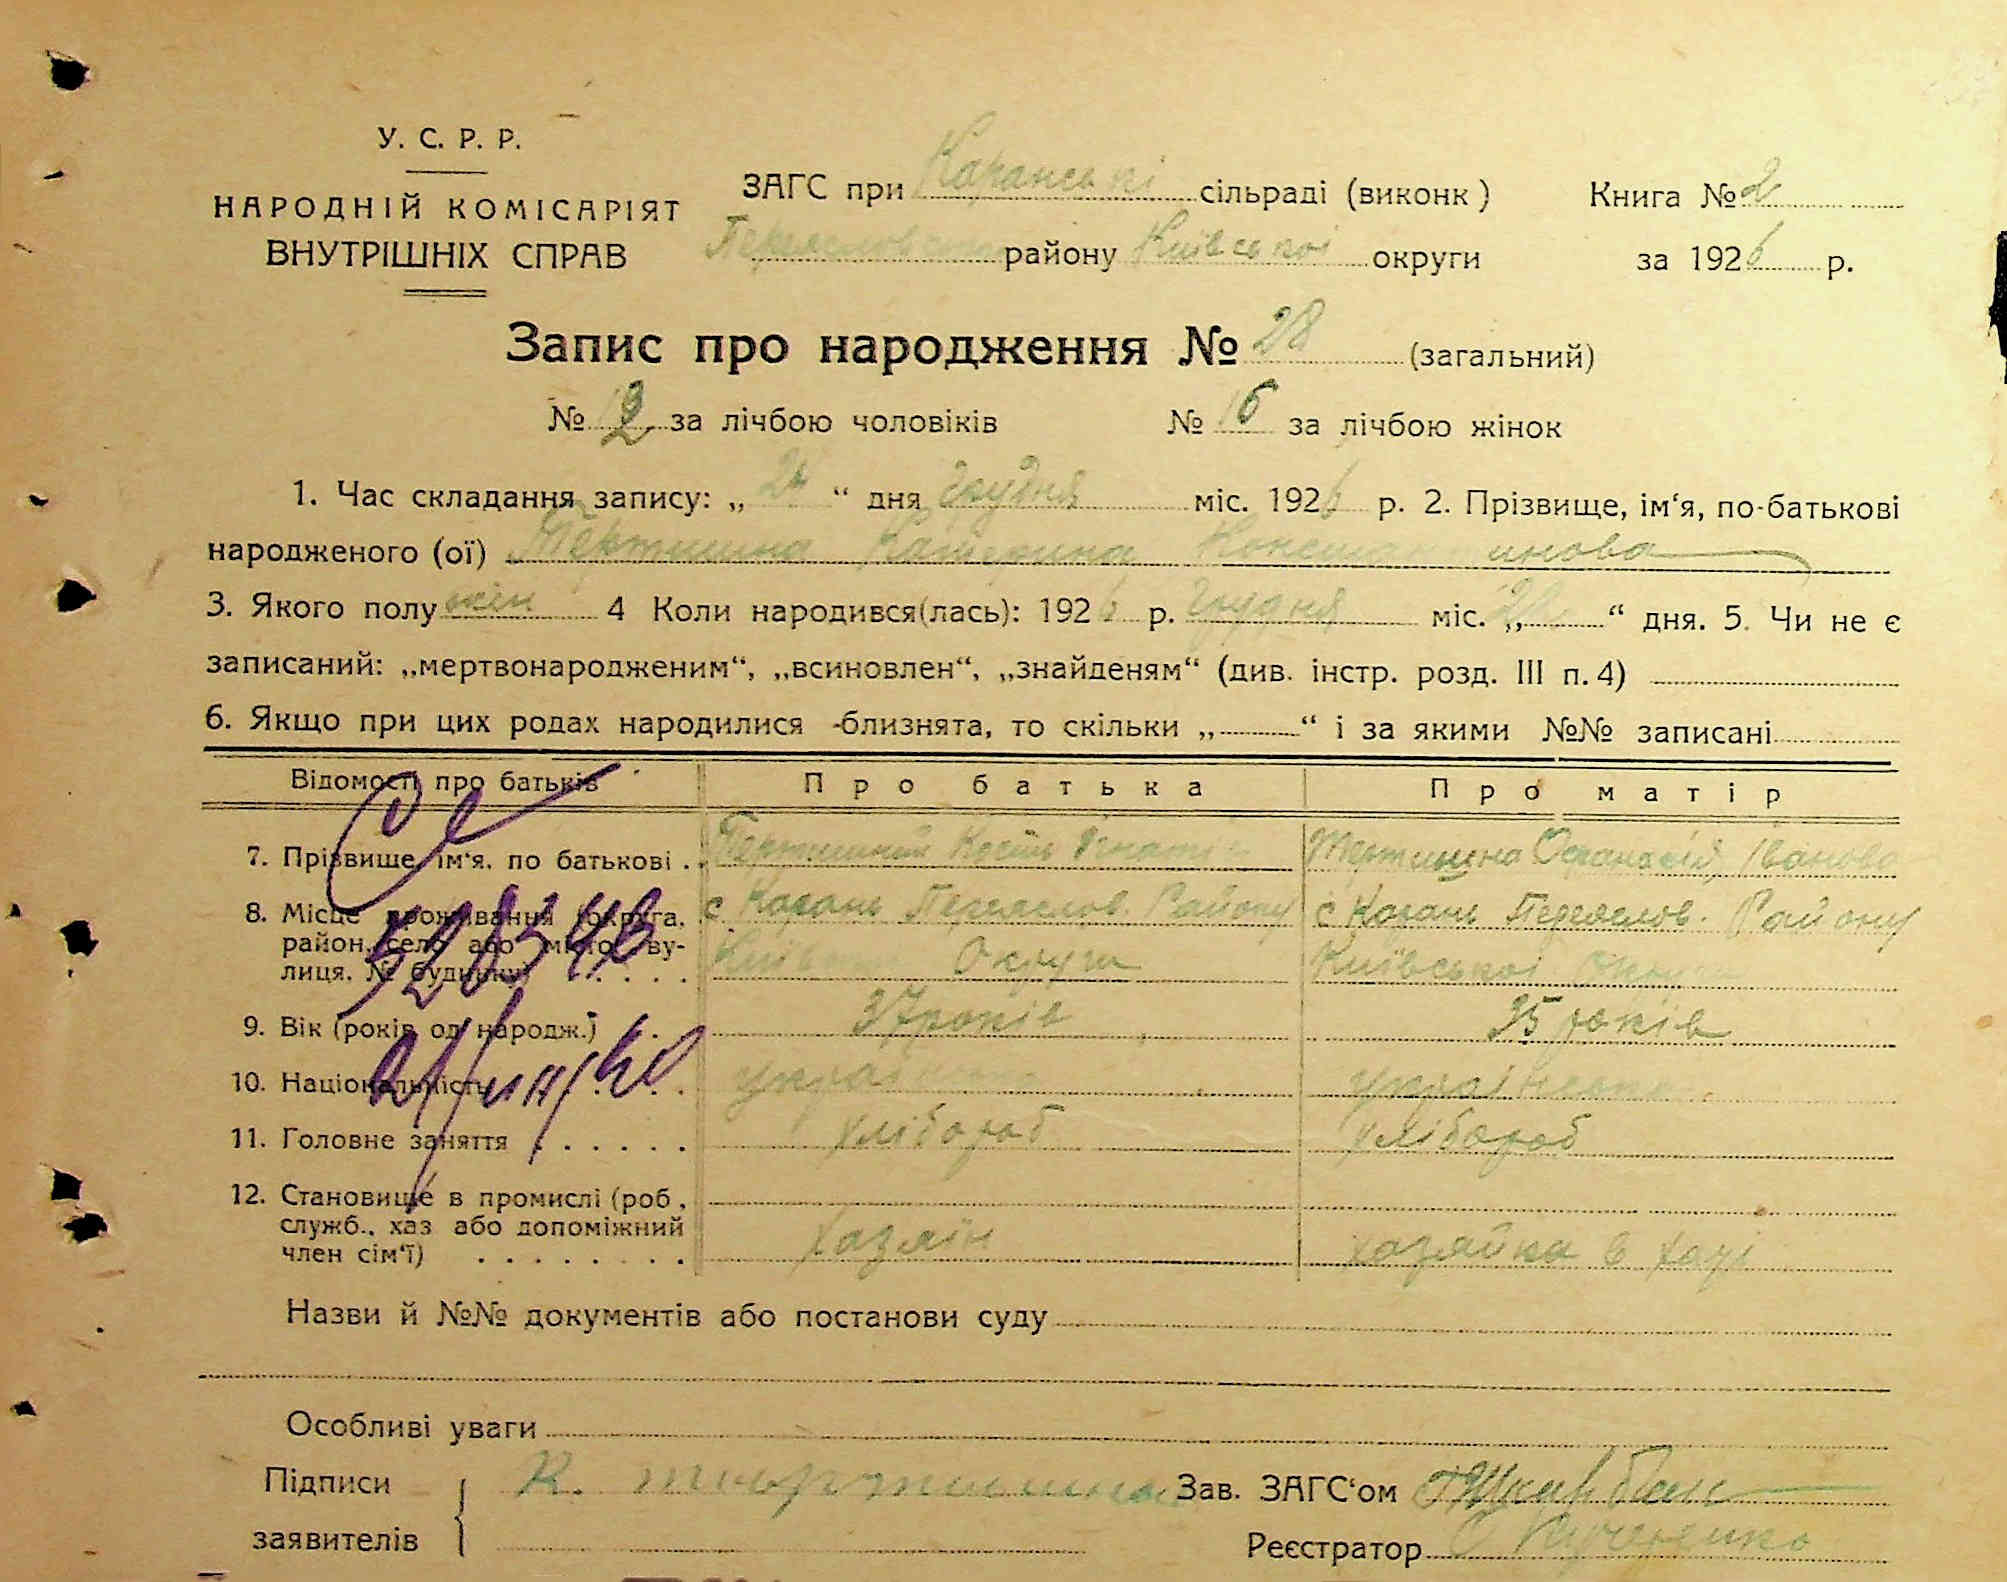 У. С. Р. Р.
НАРОДНІЙ КОМІСАРІЯТ
ВНУТРІШНІХ СПРАВ
ЗАГС при Каранські сільраді (виконк)
Переяслов району Київської округи
Книга № 2
за 1926 р.
Запис про народження № 28 (загальний)
№ 12 за лічбою чоловіків № 16 за лічбою жінок
1. Час складання запису: „ “ дня грудня міс. 1926 р. 2. Прізвище, ім‘я, по-батькові
народженого (ої) Тертишна Катерина Константинова
3. Якого полу жін 4 Коли народився(лась): 1926 р. грудня міс. „ “ дня. 5. Чи не є
записаний: „мертвонародженим“, „всиновлен“, „знайденям“ (див. інстр. розд. III п. 4)
6. Якщо при цих родах народилися -близнята, то скільки „ “ і за якими №№ записані
Відомості про батьків Про батька Про матір
7. Прізвище, ім‘я, по батькові . Тертишний Кость Тертишна Іванова
8. Місце проживання (округа, район, село або місто, вулиця, № будинку) с Карань Переяслов. Району с Карань Переяслов. Району
Округи Київської Округи
528348
9. Вік (років од народж.) 37 років 35 років
10. Національність українка
11. Головне заняття хлібороб хлібороб
12. Становище в промислі (роб., служб., хаз або допоміжний член сім‘ї) хазяїн хазяйка в хаті
Назви й №№ документів або постанови суду
Особливі уваги
Підписи заявителів К. Зав. ЗАГС‘ом
Реєстратор